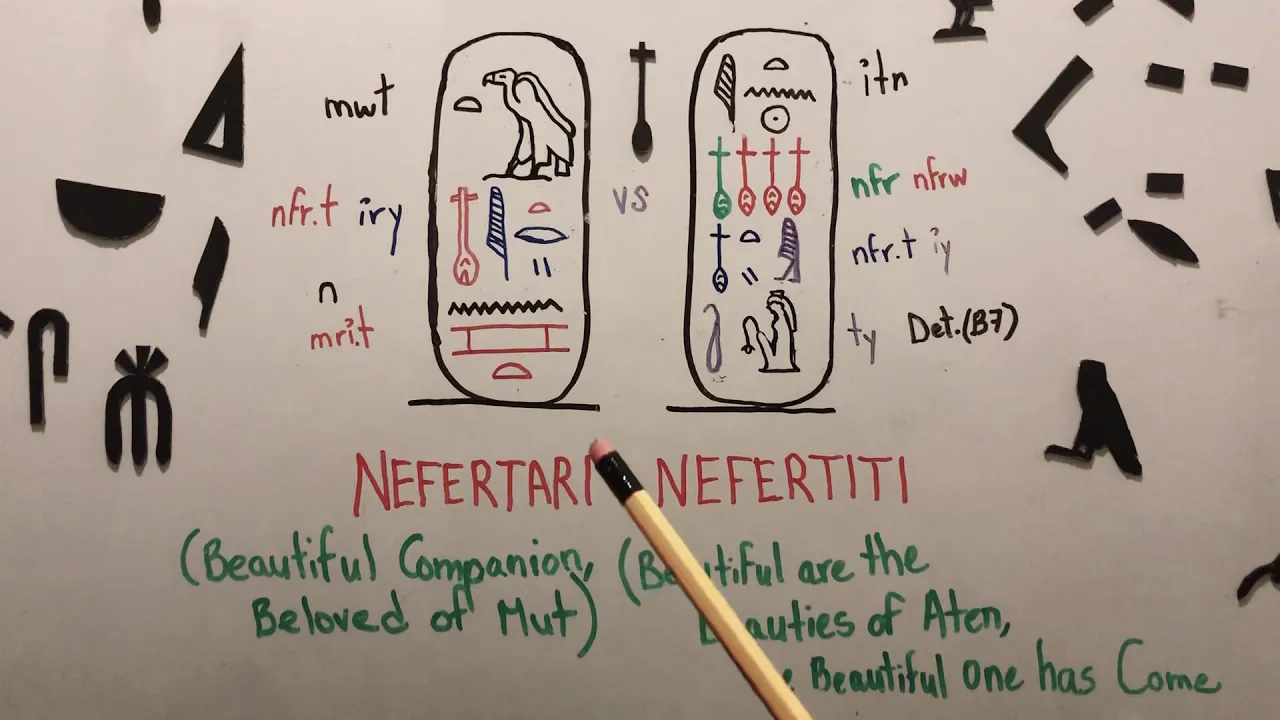 mwt
nfr.t iry
n
mri.t
vs
itn
nfr nfrw
nfr.t iy
ty Det.(B7)
NEFERTARI
(Beautiful Companion,
Beloved of Mut)
NEFERTITI
are the
of Aten,
Beautiful One has Come